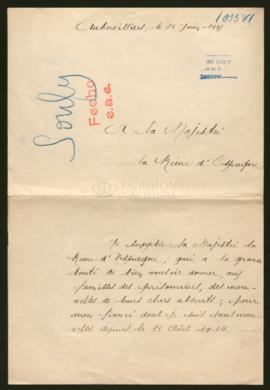 Aubervilliers, le 25 Juin 1915
Souly
Fecho
e.a.e.
A Sa Majesté
la Reine d'Espagne
PATRIMONIO
NACIONAL
Je supplie Sa Majesté la
Reine d'Espagne, qui a la grande
bonté de bien vouloir donner, aux
familles des prisonniers, des nou-
velles de leurs chers absents; pour
mon fiancé dont je suis sans nou-
velles depuis le 25 Août 1914.